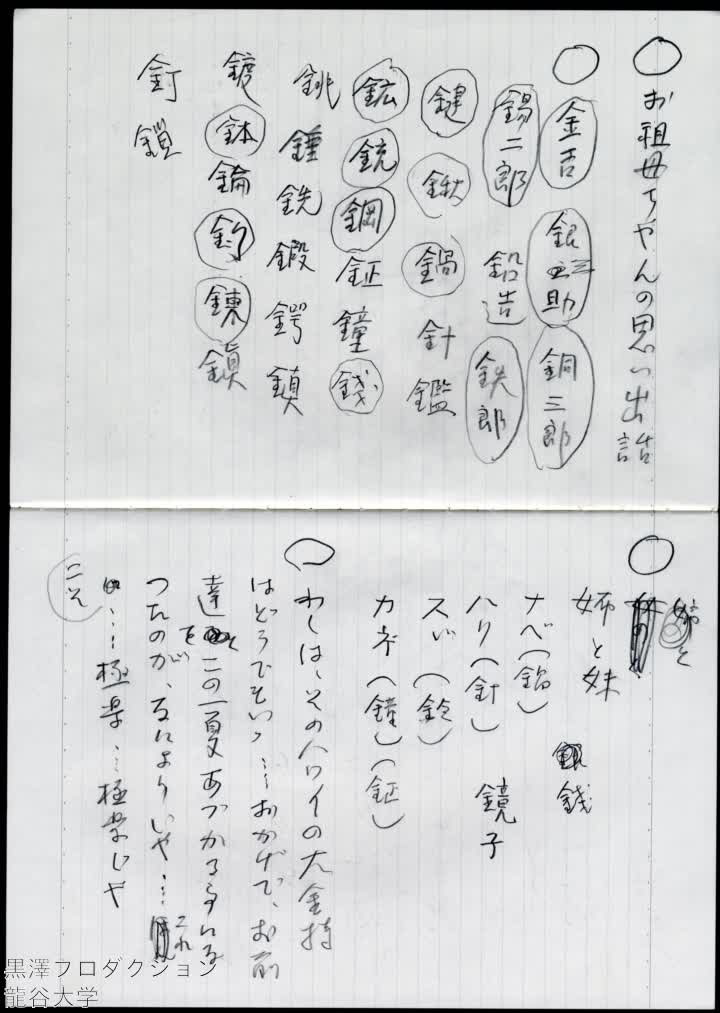 ○ お祖母ちゃんの思い出話
○ 金吉 銀之助 銅三郎
錫二郎 鉛造 鉄郎
鍵 鍬 鍋 針 鑑
鉱 銃 鋼 鉦 鐘 銭
銚 錘 銑 鍛 鍔 鎮
鍍 鉢 錀 釣 錬 鎭
釘 鎖
○ 姉と
姉と妹 銭
ナベ(鍋)
ハリ(針) 鏡子
スズ(鈴)
カネ(鐘)(鉦)
○ わしは、そのハワイの大金持
はどうでもいゝ…おかげで、お前
達をこの一夏あづかる事にな
つたのが、なによりいや…これ
こそ…極楽…極楽じや
黒澤プロダクション
龍谷大学